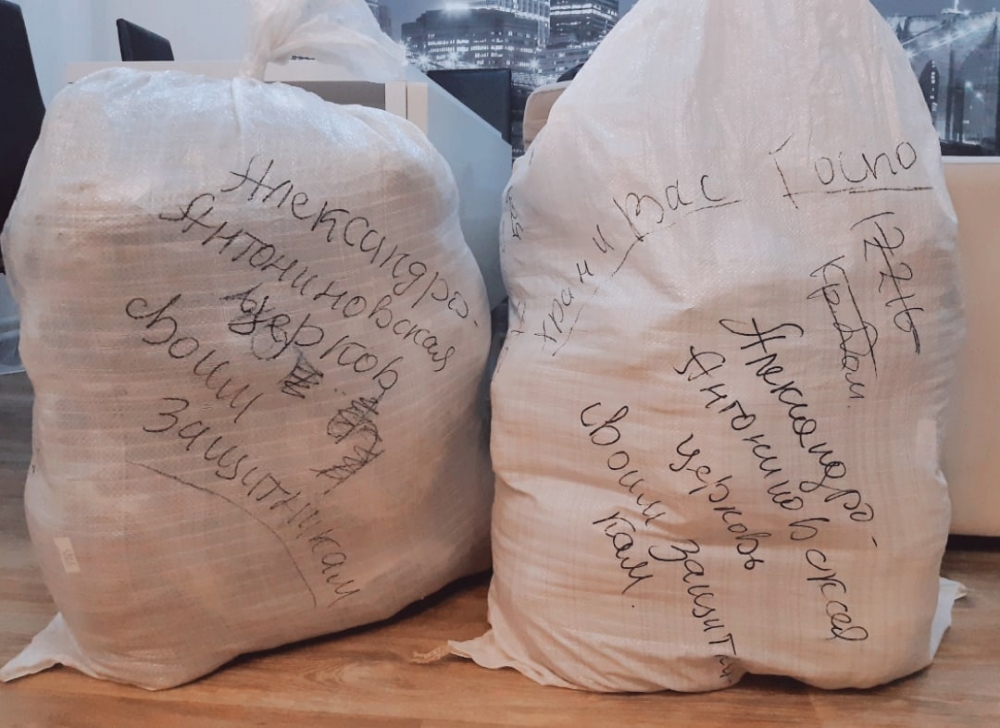 Александро-
Антониновская
церковь
своим
защитникам
храни Вас Госпо
Александро-
Антониновская
церковь
своим защитни
кам